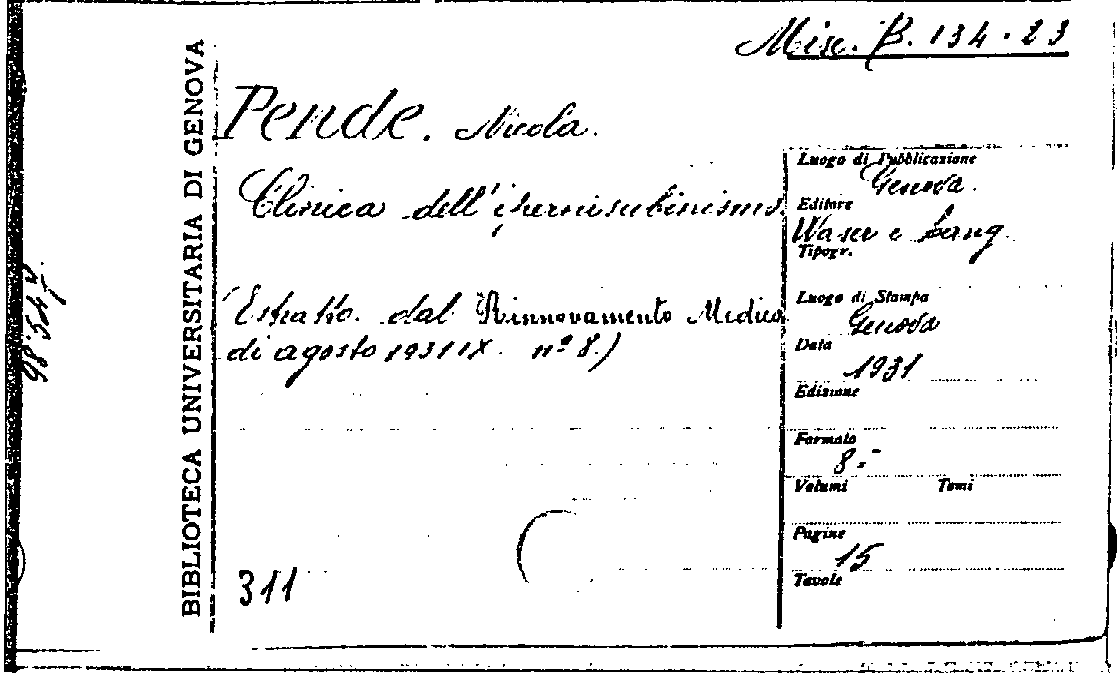 Misc. B. 134.23
BIBLIOTECA UNIVERSITARIA DI GENOVA
Pende. Nicola.
Clinica dell'ipernisubinismo.
(Estratto dal Rinnovamento Medico
di agosto 1931 IX. nº 8.)
311
Luogo di Pubblicazione
Genova.
Editore
Waser e
Tipogr.
Luogo di Stampa
Genova
Data
1931
Edizione
Formato
8.º
Volumi Tomi
Pagine
15
Tavole